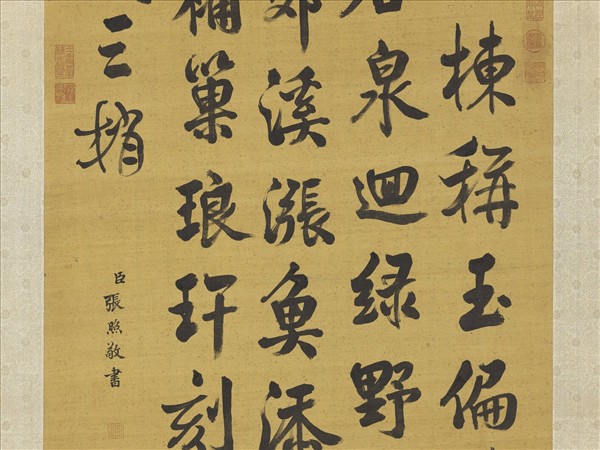 棟稱玉偏
泉迴綠野
郊溪漲魚添
補巢琅玕刻
三梢
臣張照敬書